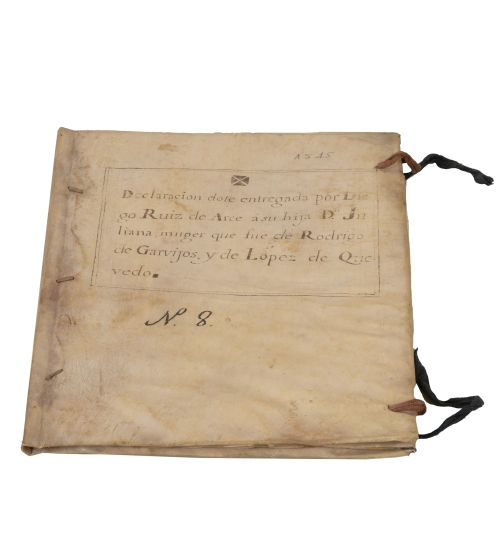 1545
Declaracion dote entregada por Die
go Ruiz de Arce á su hija D.ª Ju
liana, muger que fue de Rodrigo
de Garvijos, y de López de Que
vedo.
N.º 8.